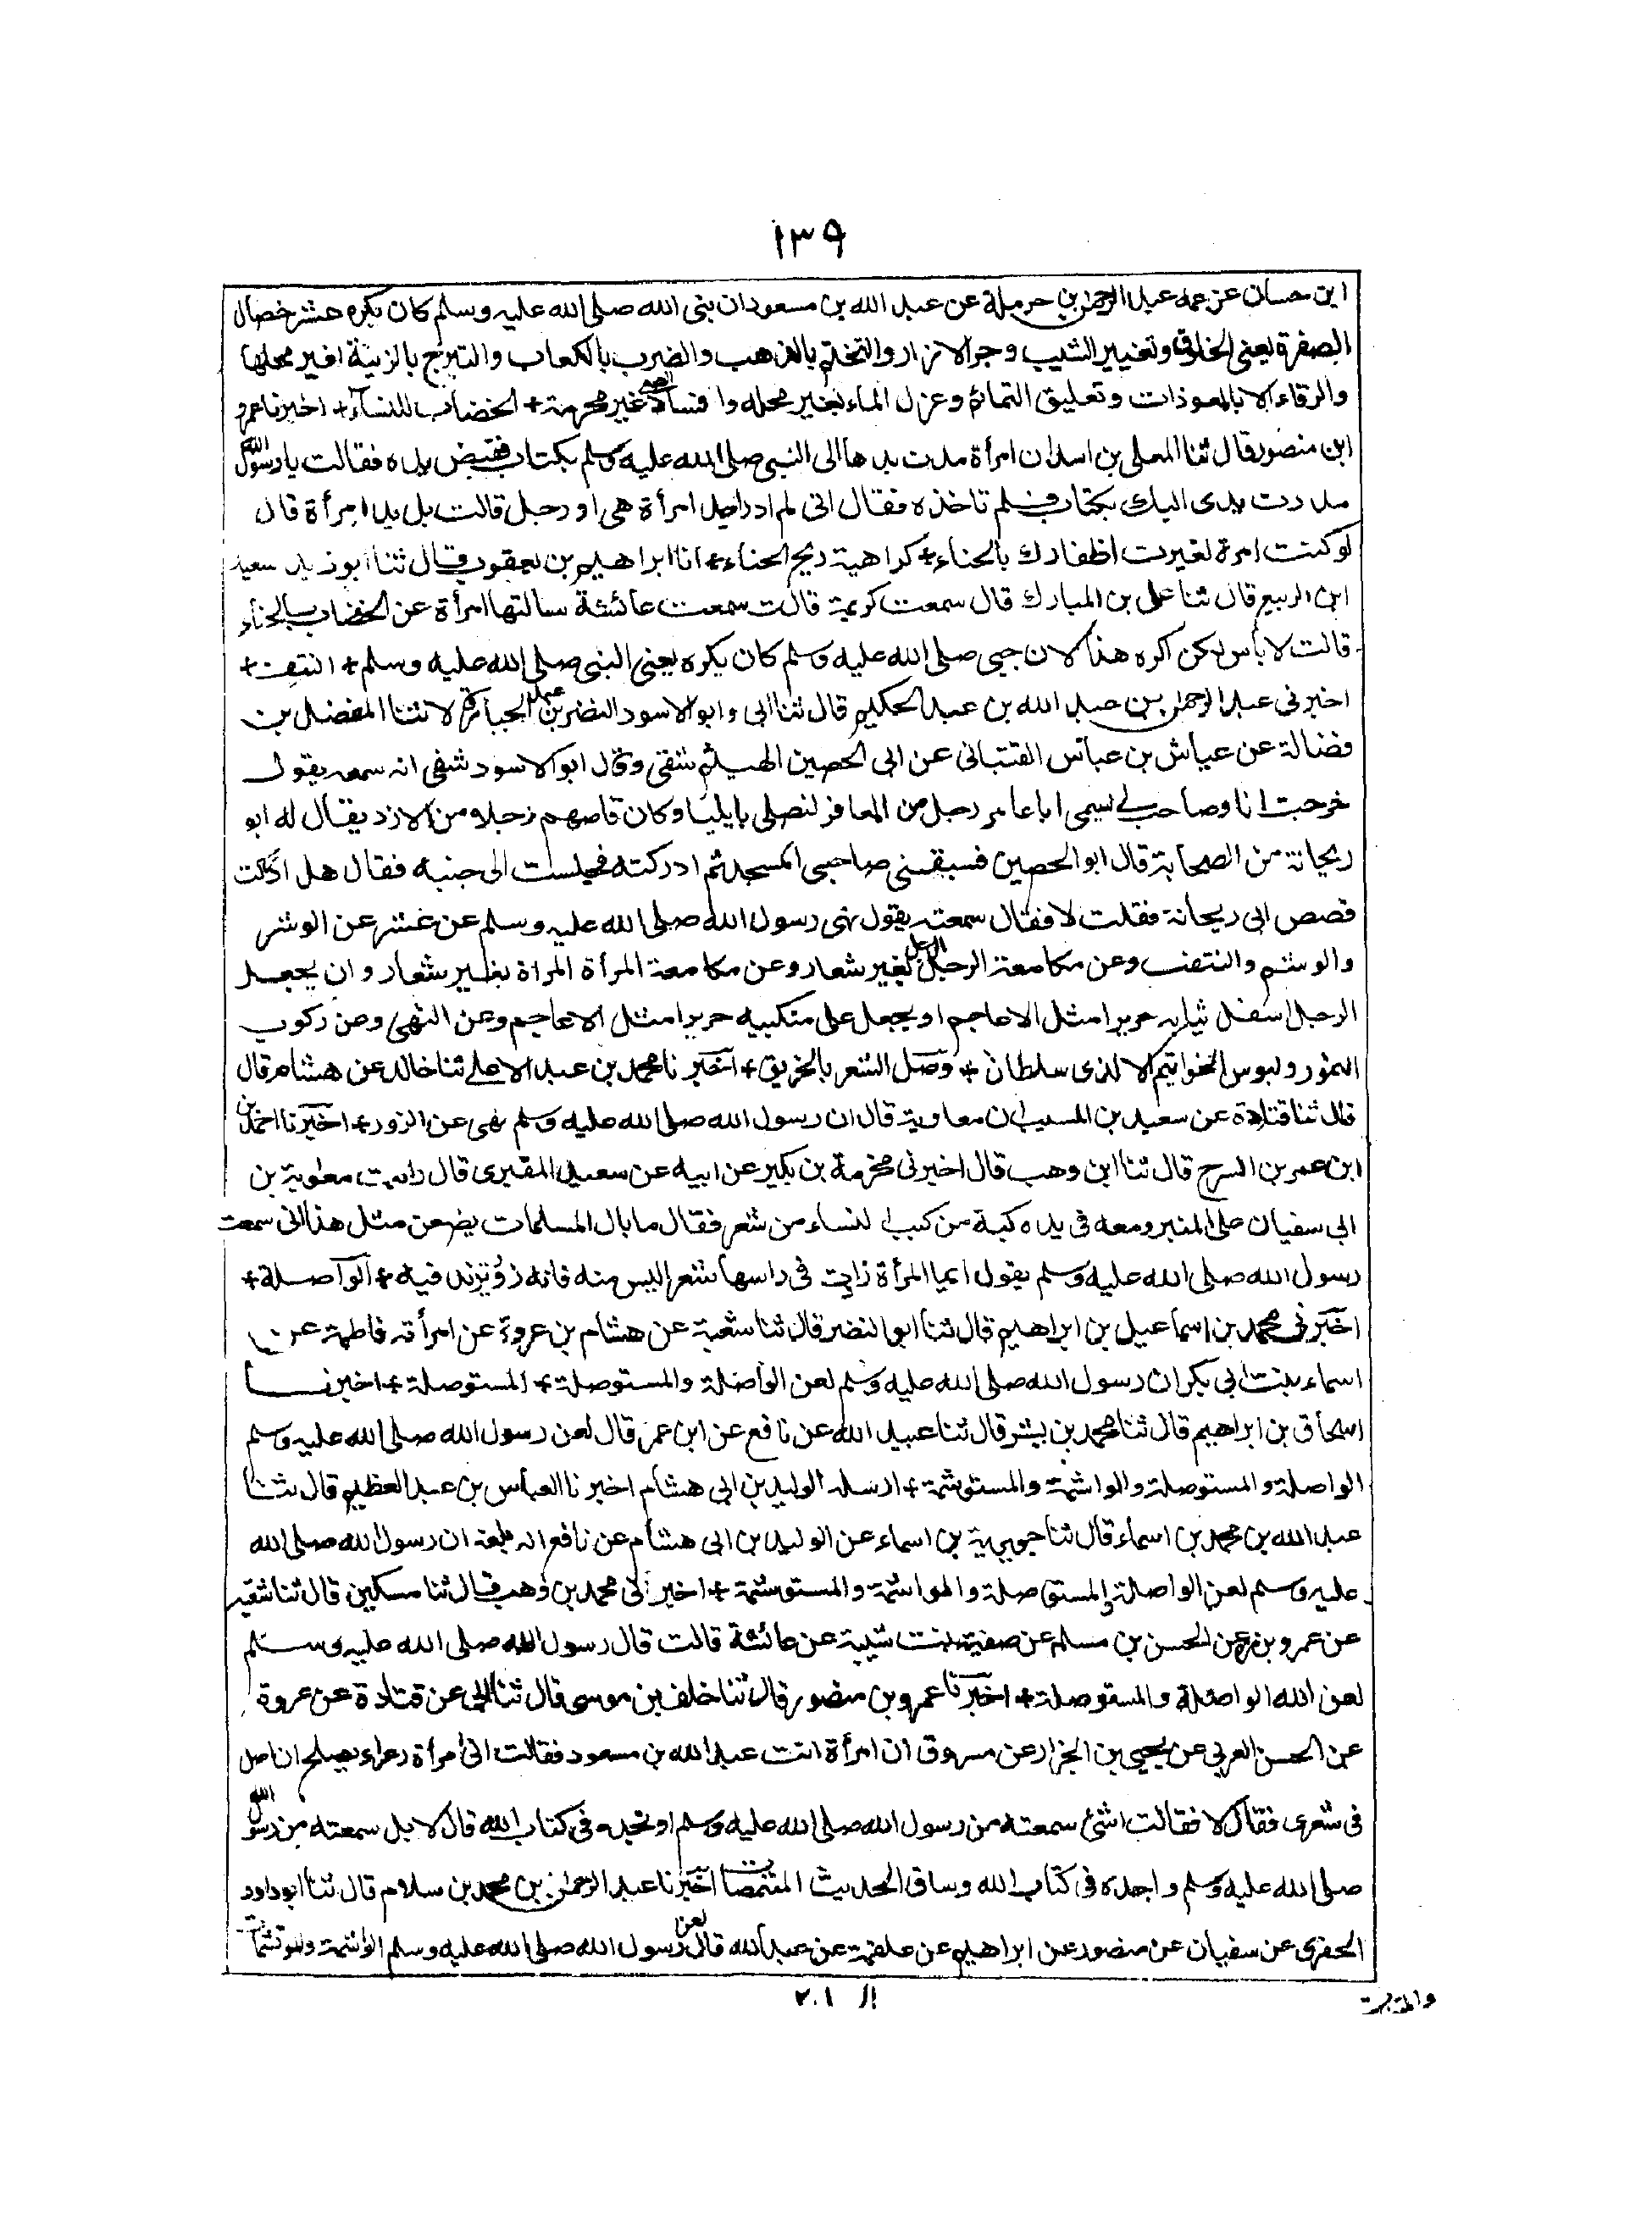 ١٣٩
ابن حسان عن عمه عبد الرحمن بن حرملة عن عبد الله بن مسعود ان نبى الله صلى الله عليه وسلم كان يكره عشر خصال
الصفرة يعنى الخلوق وتغيير الشيب وجر الازار والتختم بالذهب والضرب بالكعاب والتبرج بالزينة لغير محلها
والرقاء الا بالمعوذات وتعليق التمائم وعزل الماء لغير محله وافساد الصبى غير محرمه + الخضاب للنساء + اخبرنا عمرو
ابن منصور قال ثنا المعلى بن اسد ان امرأة مدت يدها الى النبى صلى الله عليه وسلم بكتاب فقبض يده فقالت يا رسول الله
مددت يدى اليك بكتاب فلم تاخذه فقال انى لم ادر ايد امرأة هى او رجل قالت بل يد امرأة قال
لو كنت امرة لغيرت اظفارك بالحناء + كراهية ريح الحناء + انا ابراهيم بن يعقوب قال ثنا ابو زيد سعيد
ابن الربيع قال ثنا على بن المبارك قال سمعت كريمة قالت سمعت عائشة سالتها امرأة عن الخضاب بالحناء
قالت لا بأس لكن اكره هذا لان حبى صلى الله عليه وسلم كان يكره يعنى النبى صلى الله عليه وسلم + النتف +
اخبرنى عبد الرحمن بن عبد الله بن عبد الحكيم قال ثنا ابى وابو الاسود النضر بن عبد الجبار قالا ثنا المفضل بن
فضالة عن عياش بن عباس القتبانى عن ابى الحصين الهيثم شفى وقال ابو الاسود شفى انه سمعه يقول
خرجت انا وصاحب لى يسمى ابا عامر رجل من المعافر لنصلى بايليا وكان قاصهم رجلا من الازد يقال له ابو
ريحانة من الصحابة قال ابو الحصين فسبقنى صاحبى المسجد ثم ادركته فجلست الى جنبه فقال هل ادركت
قصص ابى ريحانة فقلت لا فقال سمعته يقول نهى رسول الله صلى الله عليه وسلم عن عشر عن الوشر
والوشم والنتف وعن مكامعة الرجل الرجل بغير شعار وعن مكامعة المرأة المراة بغير شعار وان يجعل
الرجل اسفل ثيابه حريرا مثل الاعاجم او يجعل على منكبيه حريرا مثل الاعاجم وعن النهى وعن ركوب
النمور ولبوس الخواتيم الا لذى سلطان + وصل الشعر بالخريق + اخبرنا محمد بن عبد الاعلى ثنا خالد عن هشام قال
قال ثنا قتادة عن سعيد بن المسيب ان معاوية قال ان رسول الله صلى الله عليه وسلم نهى عن الزور + اخبرنا احمد بن
ابن عمر بن السرح قال ثنا ابن وهب قال اخبرنى مخرمة بن بكير عن ابيه عن سعيد المقبرى قال رايت معوية بن
ابى سفيان على المنبر ومعه فى يده كبة من كبب النساء من شعر فقال ما بال المسلمات يضعن مثل هذا انى سمعت
رسول الله صلى الله عليه وسلم يقول ايما امرأة زادت فى راسها شعر اليس منه فانه زور تزيد فيه + الواصلة +
اخبرنى محمد بن اسماعيل بن ابراهيم قال ثنا ابو النضر قال ثنا شعبة عن هشام بن عروة عن امرأته فاطمة عن
اسماء بنت ابى بكر ان رسول الله صلى الله عليه وسلم لعن الواصلة والمستوصلة + المستوصلة + اخبرنا
اسحاق بن ابراهيم قال ثنا محمد بن بشر قال ثنا عبيد الله عن نافع عن ابن عمر قال لعن رسول الله صلى الله عليه وسلم
الواصلة والمستوصلة والواشمة والمستوشمة + ارسله الوليد بن ابى هشام اخبرنا العباس بن عبد العظيم قال ثنا
عبد الله بن محمد بن اسماء قال ثنا جويرية بن اسماء عن الوليد بن ابى هشام عن نافع انه بلغه ان رسول الله صلى الله
عليه وسلم لعن الواصلة والمستوصلة والواشمة والمستوشمة + اخبرنى محمد بن وهب قال ثنا مسكين قال ثنا شعبة
عن عمرو بن مرة عن الحسن بن مسلم عن صفية بنت شيبة عن عائشة قالت قال رسول الله صلى الله عليه وسلم
لعن الله الواصلة والمستوصلة + اخبرنا عمرو بن منصور قال ثنا خلف بن موسى قال ثنا ابى عن قتادة عن عروة
عن الحسن العرنى عن يحيى بن الجزار عن مسروق ان امرأة اتت عبد الله بن مسعود فقالت انى امرأة زعراء يصلح ان اصل
فى شعرى فقال لا فقالت اشئ سمعته من رسول الله صلى الله عليه وسلم او تجده فى كتاب الله قال لا بل سمعته من رسول الله
صلى الله عليه وسلم واجده فى كتاب الله وساق الحديث المتنمصات اخبرنا عبد الرحمن بن محمد بن سلام قال ثنا ابو داود
الحفرى عن سفيان عن منصور عن ابراهيم عن علقمة عن عبد الله قال لعن رسول الله صلى الله عليه وسلم الواشمة والموتشمات
٢٠١